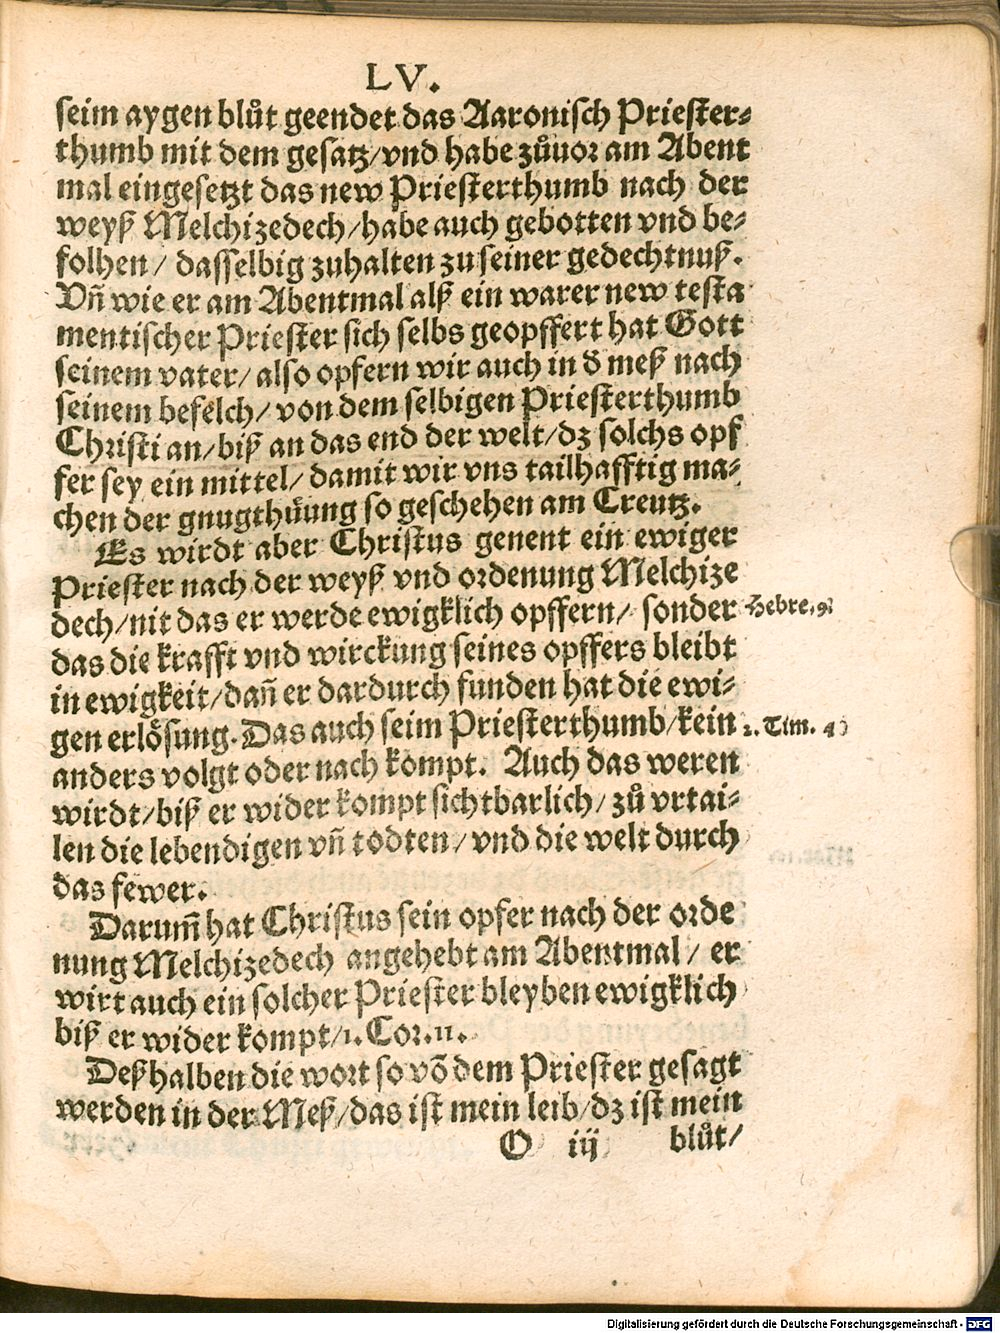 LV.
seim aygen blůt geendet das Aaronisch Priester⸗
thumb mit dem gesatz/vnd habe zůuor am Abent
mal eingesetzt das new Priesterthumb nach der
weyß Melchizedech/habe auch gebotten vnd be⸗
folhen/ dasselbig zuhalten zu seiner gedechtnuß.
Vñ wie er am Abentmal alß ein warer new testa
mentischer Priester sich selbs geopffert hat Gott
seinem vater/ also opfern wir auch in d̓ meß nach
seinem befelch/ von dem selbigen Priesterthumb
Christi an/biß an das end der welt/dz solchs opf
fer sey ein mittel/ damit wir vns tailhafftig ma⸗
chen der gnugthüung so geschehen am Creutz.
Es wirdt aber Christus genent ein ewiger
Priester nach der weyß vnd ordenung Melchize
dech/nit das er werde ewigklich opffern/ sonder Hebre. 9.
das die krafft vnd wirckung seines opffers bleibt
in ewigkeit/dañ er dardurch funden hat die ewi⸗
gen erlösung. Das auch seim Priesterthumb/kein 2. Tim. 4
anders volgt oder nach kompt. Auch das weren
wirdt/biß er wider kompt sichtbarlich/ zů vrtai⸗
len die lebendigen vñ todten/ vnd die welt durch
das fewer.
Darum̃ hat Christus sein opfer nach der orde
nung Melchizedech angehebt am Abentmal/ er
wirt auch ein solcher Priester bleyben ewigklich
biß er wider kompt/1. Cor. 11.
Deßhalben die wort so võ dem Priester gesagt
werden in der Meß/das ist mein leib/dz ist mein
O iij blůt/
Digitalisierung gefördert durch die Deutsche Forschungsgemeinschaft - DFG